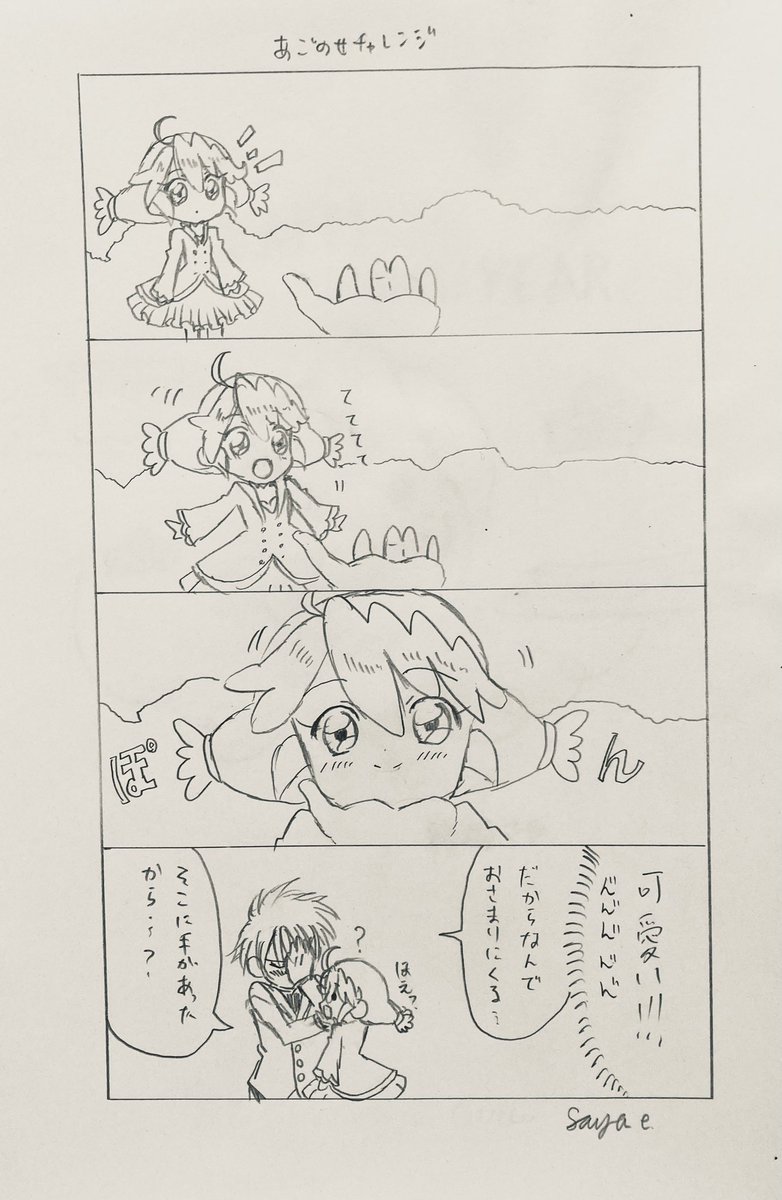 あごのせチャレンジ
て
て
て
て
ぽん
可愛い!!!
んんんんん
だからなんで
おさまりにくる…
?
ほえっ?
そこに手があった
から…?
Saya e.